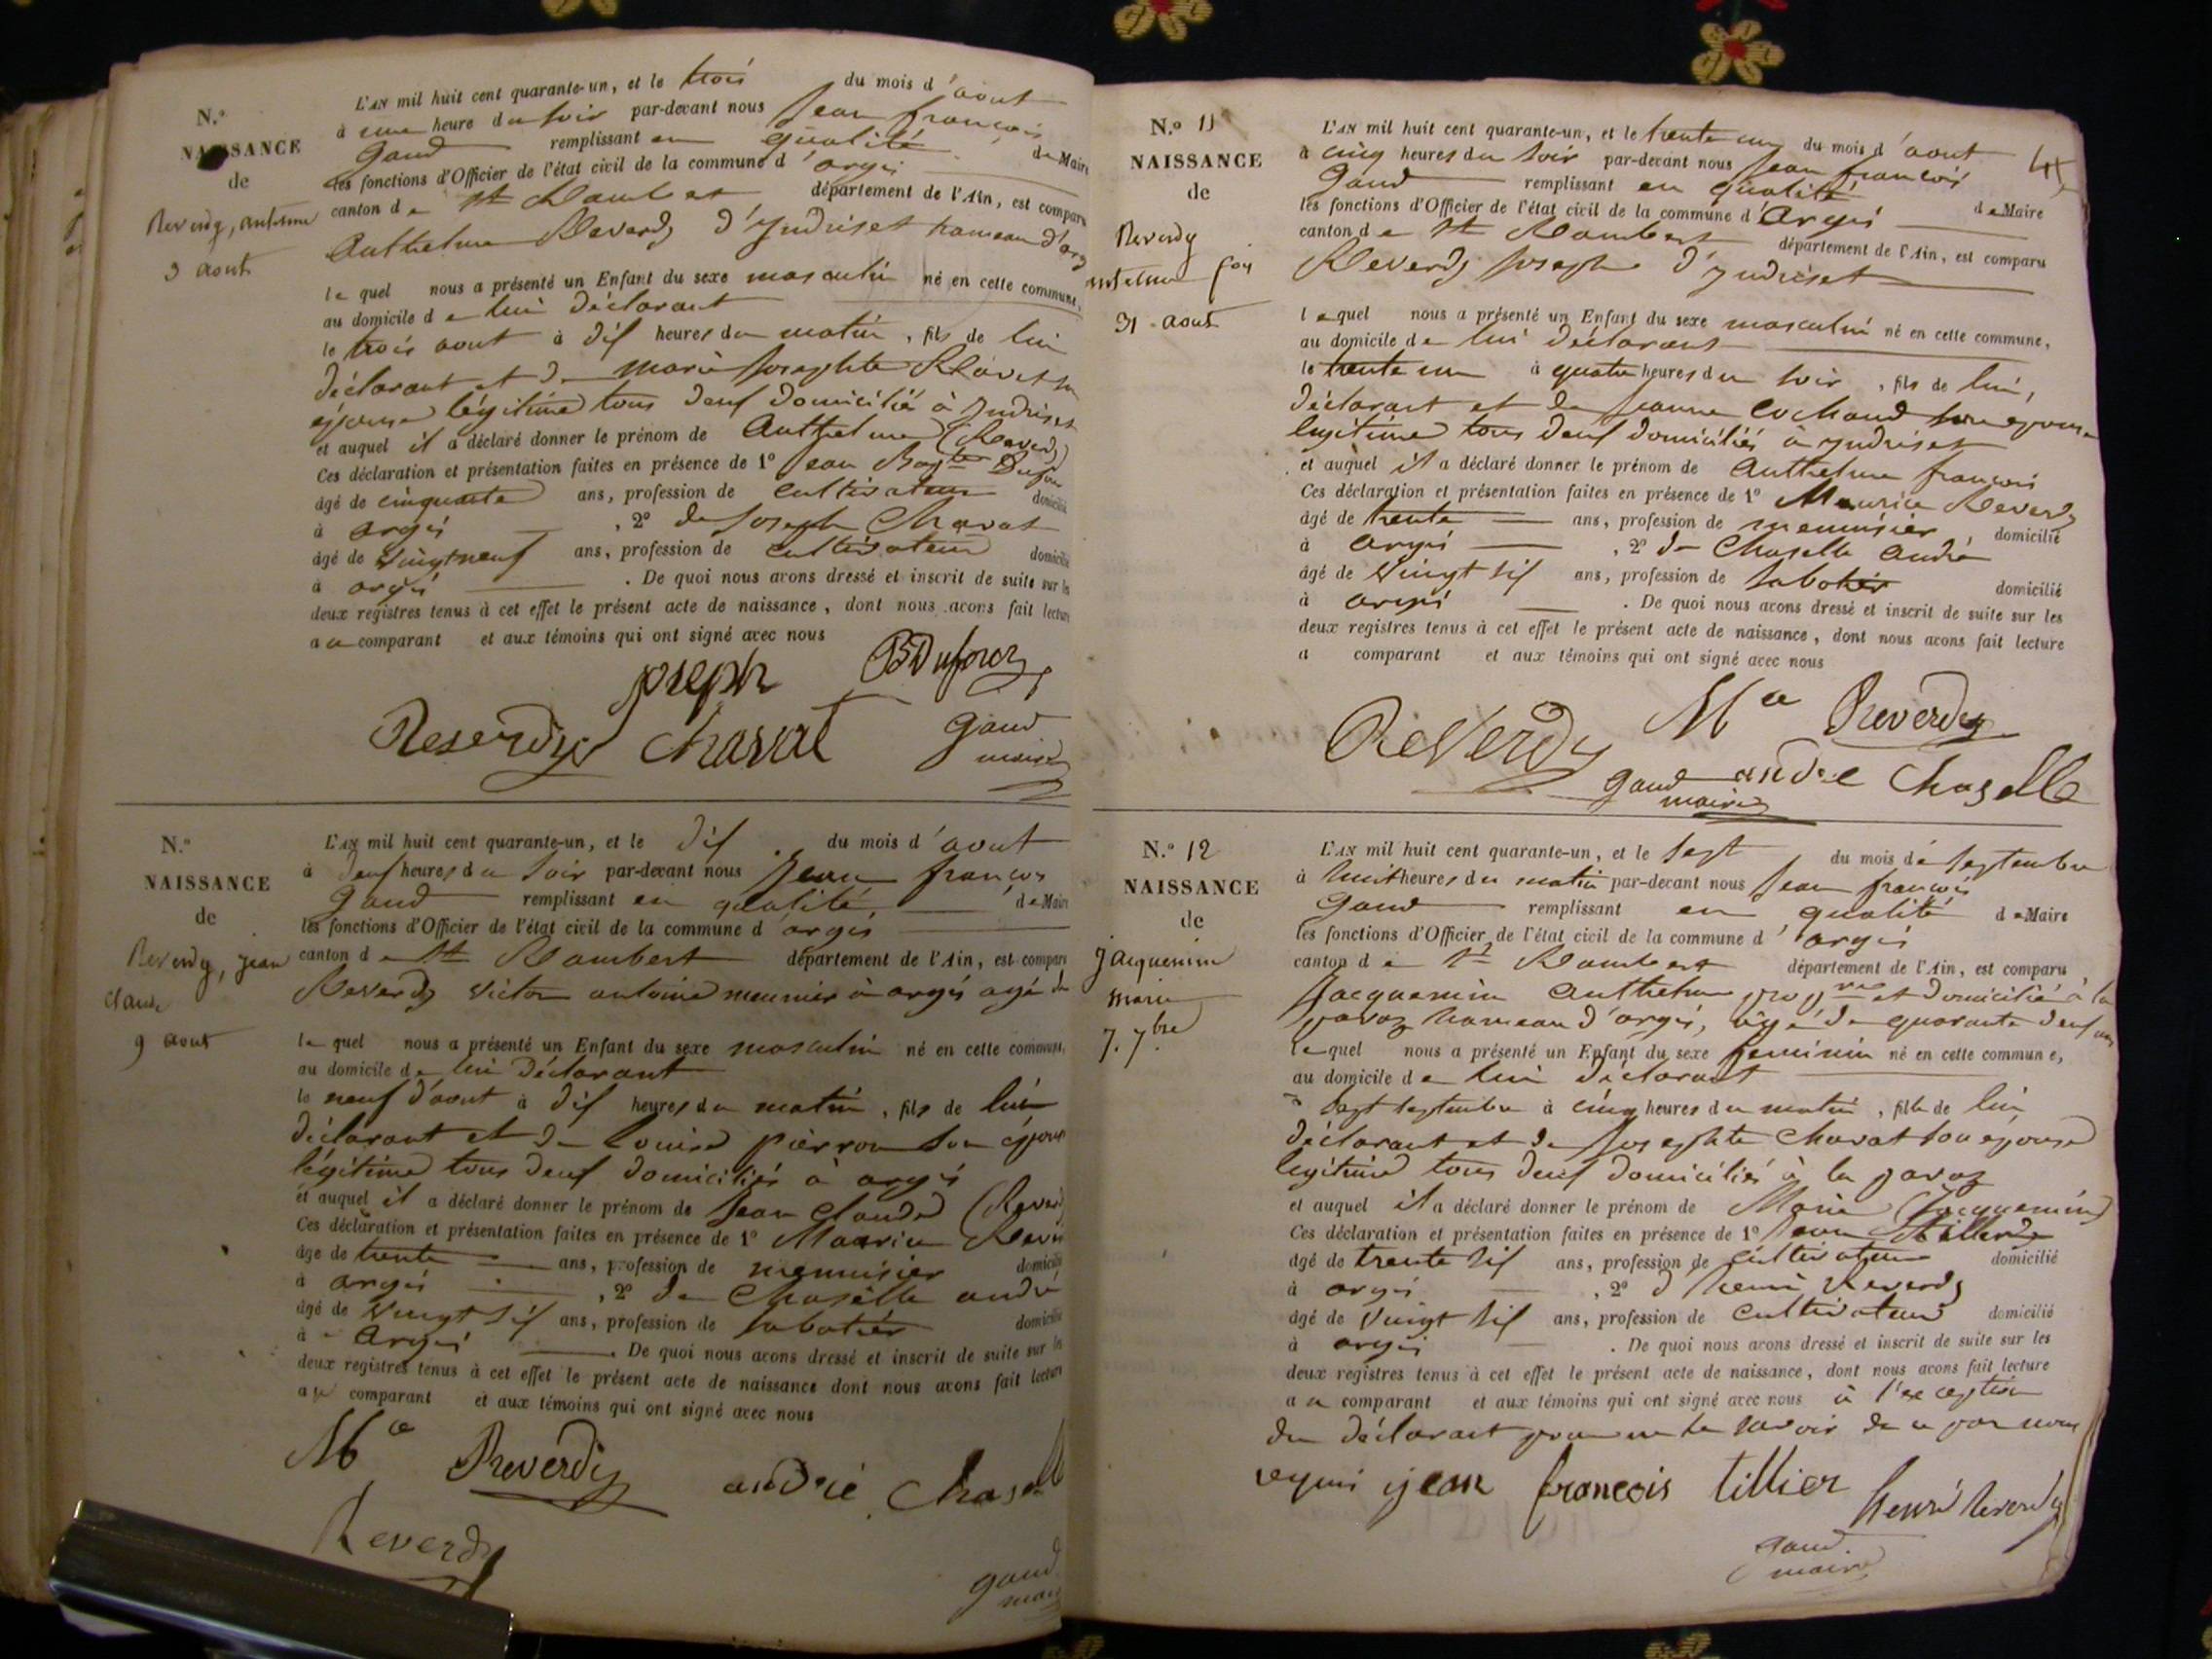 N.o
NAISSANCE
de
Reverdy, antelme
3 aout
L'AN mil huit cent quarante-un, et le trois du mois d'aout
à une heure du soir par-devant nous Jean françois
gaud remplissant en qualité de Maire
les fonctions d'Officier de l'état civil de la commune d'argis
canton de st Rambert département de l'Ain, est comparu
Anthelme Reverdy d'yndrieset hameau d'argis
lequel nous a présenté un Enfant du sexe masculin né en cette commune,
au domicile de lui déclarant
le trois aout à dix heures du matin, fils de lui
déclarant et de marie josephte
épouse légitime tous deux domicilié à yndrieset
et auquel il a déclaré donner le prénom de Anthelme (Reverdy)
Ces déclaration et présentation faites en présence de 1o Jean Bapte Dufour
âgé de cinquante ans, profession de cultivateur domicilié
à argis, 2o de joseph Charvat
âgé de vingt neuf ans, profession de cultivateur domicilié
à argis. De quoi nous avons dressé et inscrit de suite sur les
deux registres tenus à cet effet le présent acte de naissance, dont nous avons fait lecture
au comparant et aux témoins qui ont signé avec nous
joseph BDufour
Reverdy Charvat gaud
maire
N.o
NAISSANCE
de
Reverdy, jean
claude
9 aout
L'AN mil huit cent quarante-un, et le dix du mois d'aout
à deux heures du soir par-devant nous Jean françois
gaud remplissant en qualité de Maire
les fonctions d'Officier de l'état civil de la commune d argis
canton de st Rambert département de l'Ain, est comparu
Reverdy victor antoine meunier à argis agé de
lequel nous a présenté un Enfant du sexe masculin né en cette commune,
au domicile de lui déclarant
le neuf d'aout à dix heures du matin, fils de lui
déclarant et de Louise pierron son épouse
légitime tous deux domiciliés à argis
et auquel il a déclaré donner le prénom de Jean claude (Reverdy
Ces déclaration et présentation faites en présence de 1o Maurice Reverdy
âgé de trente ans, profession de menuisier domicilié
à argis, 2o de Chaselle andré
âgé de vingt six ans, profession de sabotier domicilié
à argis. De quoi nous avons dressé et inscrit de suite sur les
deux registres tenus à cet effet le présent acte de naissance dont nous avons fait lecture
au comparant et aux témoins qui ont signé avec nous
Mce Reverdy andré Chaselle
Reverdy
gaud
maire
N.o 11
NAISSANCE
de
Reverdy
antelme fois
31 aout
L'AN mil huit cent quarante-un, et le trente un du mois d'aout
à cinq heures du soir par-devant nous Jean françois
gaud remplissant en qualité de Maire
les fonctions d'Officier de l'état civil de la commune d'argis
canton de st Rambert département de l'Ain, est comparu
Reverdy joseph d'yndrieset
lequel nous a présenté un Enfant du sexe masculin né en cette commune,
au domicile de lui déclarant
le trente un à quatre heures du soir, fils de lui,
déclarant et de jeanne cochaud son epouse
légitime tous deux domiciliés à yndrieset
et auquel il a déclaré donner le prénom de Anthelme françois
Ces déclaration et présentation faites en présence de 1o Maurice Reverdy
âgé de trente ans, profession de menuisier domicilié
à argis, 2o de Chaselle andré
âgé de vingt six ans, profession de sabotier domicilié
à argis. De quoi nous avons dressé et inscrit de suite sur les
deux registres tenus à cet effet le présent acte de naissance, dont nous avons fait lecture
a comparant et aux témoins qui ont signé avec nous
Reverdy Mce Reverdy
gaud andré Chaselle
maire
N.o 12
NAISSANCE
de
jacquemin
marie
7. 7bre
L'AN mil huit cent quarante-un, et le sept du mois de septembre
à huit heures du matin par-devant nous Jean françois
gaud remplissant en qualité de Maire
les fonctions d'Officier de l'état civil de la commune d'argis
canton de st Rambert département de l'Ain, est comparu
Jacquemin Anthelme propre et domicilié à la
pavaz hameau d'argis, âgé de quarante deux ans
lequel nous a présenté un Enfant du sexe feminin né en cette commune,
au domicile de lui déclarant
sept septembre à cinq heures du matin, fille de lui
déclarant et de josephte Charvat son épouse
légitime tous deux domiciliés à la pavaz
et auquel il a déclaré donner le prénom de Marie (Jacquemin)
Ces déclaration et présentation faites en présence de 1o Jean
âgé de trente six ans, profession de cultivateur domicilié
à argis, 2o d henri Reverdy
âgé de vingt six ans, profession de cultivateur domicilié
à argis. De quoi nous avons dressé et inscrit de suite sur les
deux registres tenus à cet effet le présent acte de naissance, dont nous avons fait lecture
au comparant et aux témoins qui ont signé avec nous à l'exception
du déclarant pour ne le savoir de ce par nous
requis jean francois tillier henri Reverdy
gaud
maire